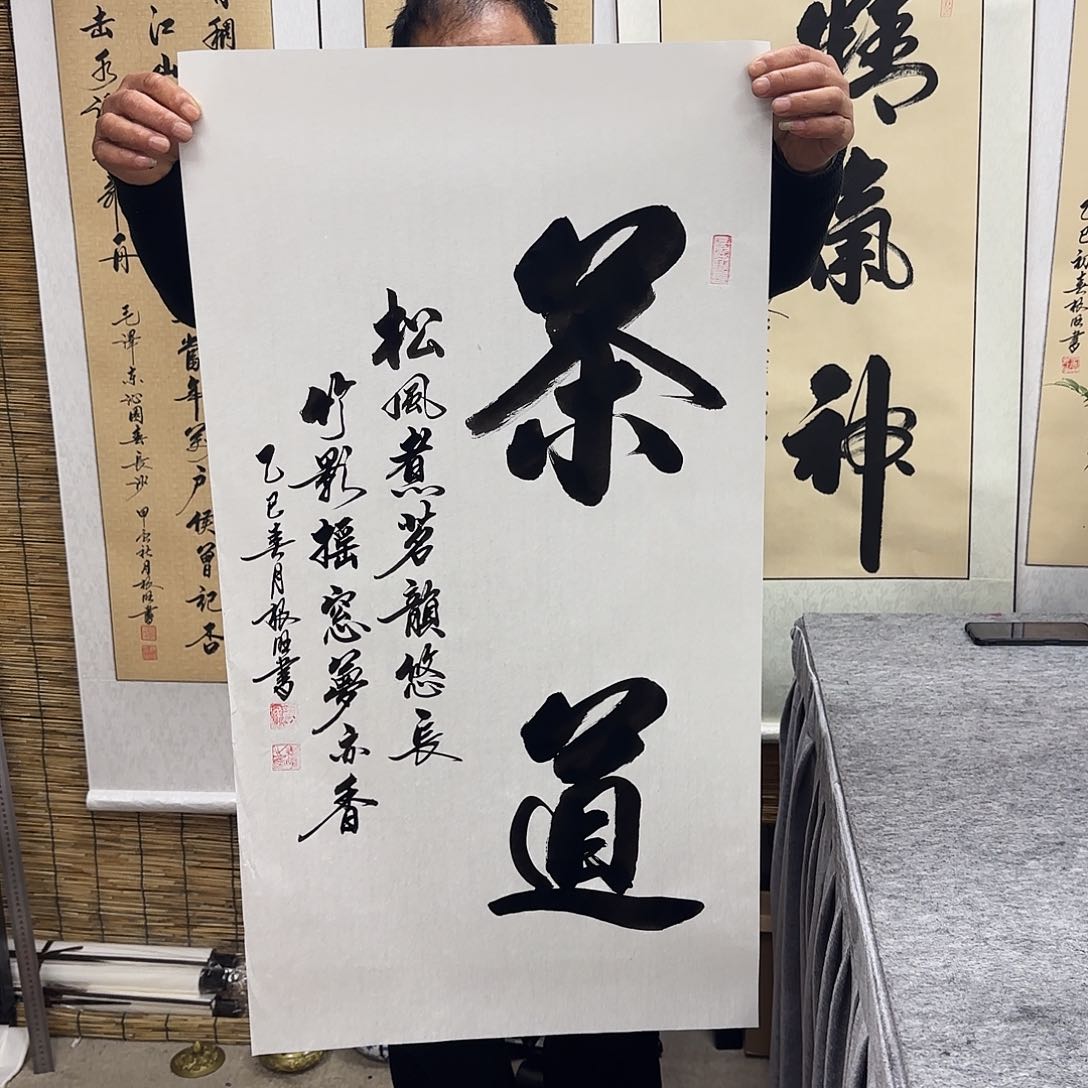 茶道
松風煮茗韻悠長
竹影摇窓夢亦香
乙巳春月根旺書
精氣神
乙巳初春根旺書
當年萬户侯曾記否
毛澤东沁園春長沙 甲辰秋月根旺書
江山
击水
舟